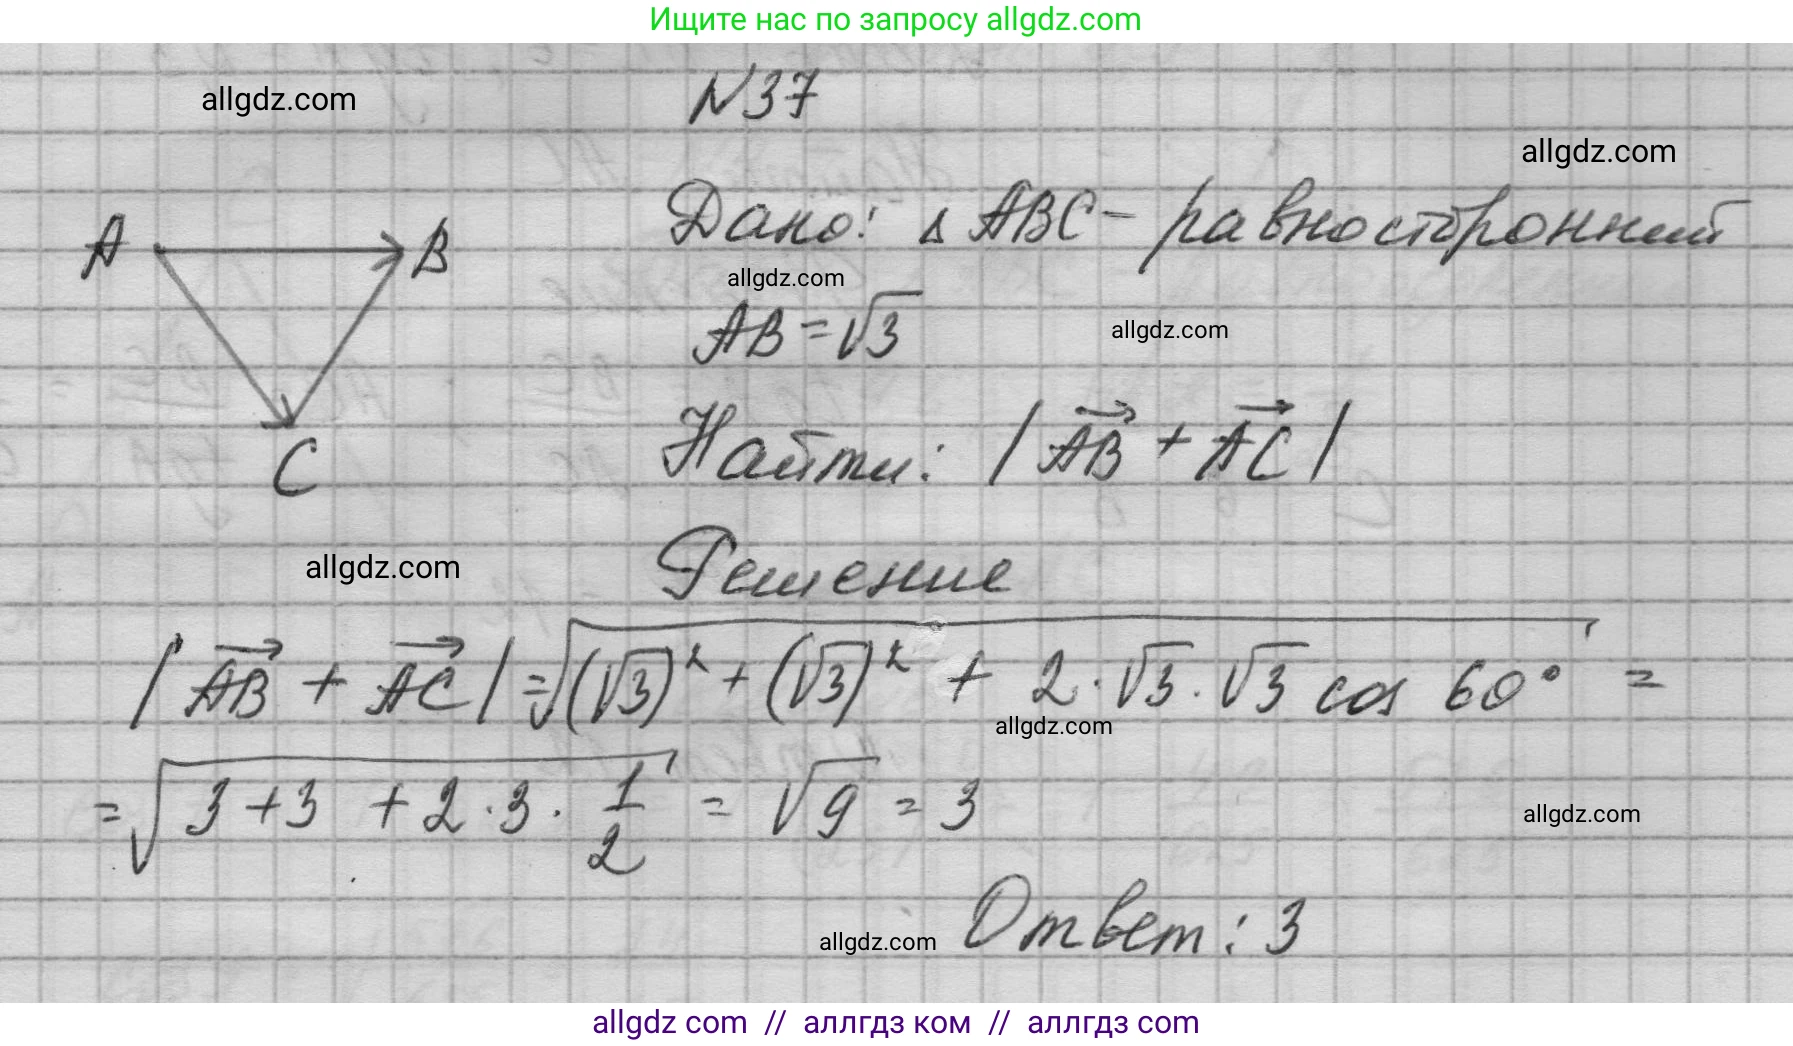 Ищите нас по запросу allgdz.com
allgdz.com
N37
allgdz.com
A
B
C
Дано: Δ ABC - равносторонний
allgdz.com
AB = √3
allgdz.com
Найти: |AB + AC|
allgdz.com
Решение
|AB + AC| = √((√3)² + (√3)² + 2·√3·√3 cos 60°) =
allgdz.com
= √(3+3 + 2·3·1/2) = √9 = 3
allgdz.com
allgdz.com
Ответ: 3
allgdz com // аллгдз ком // аллгдз com